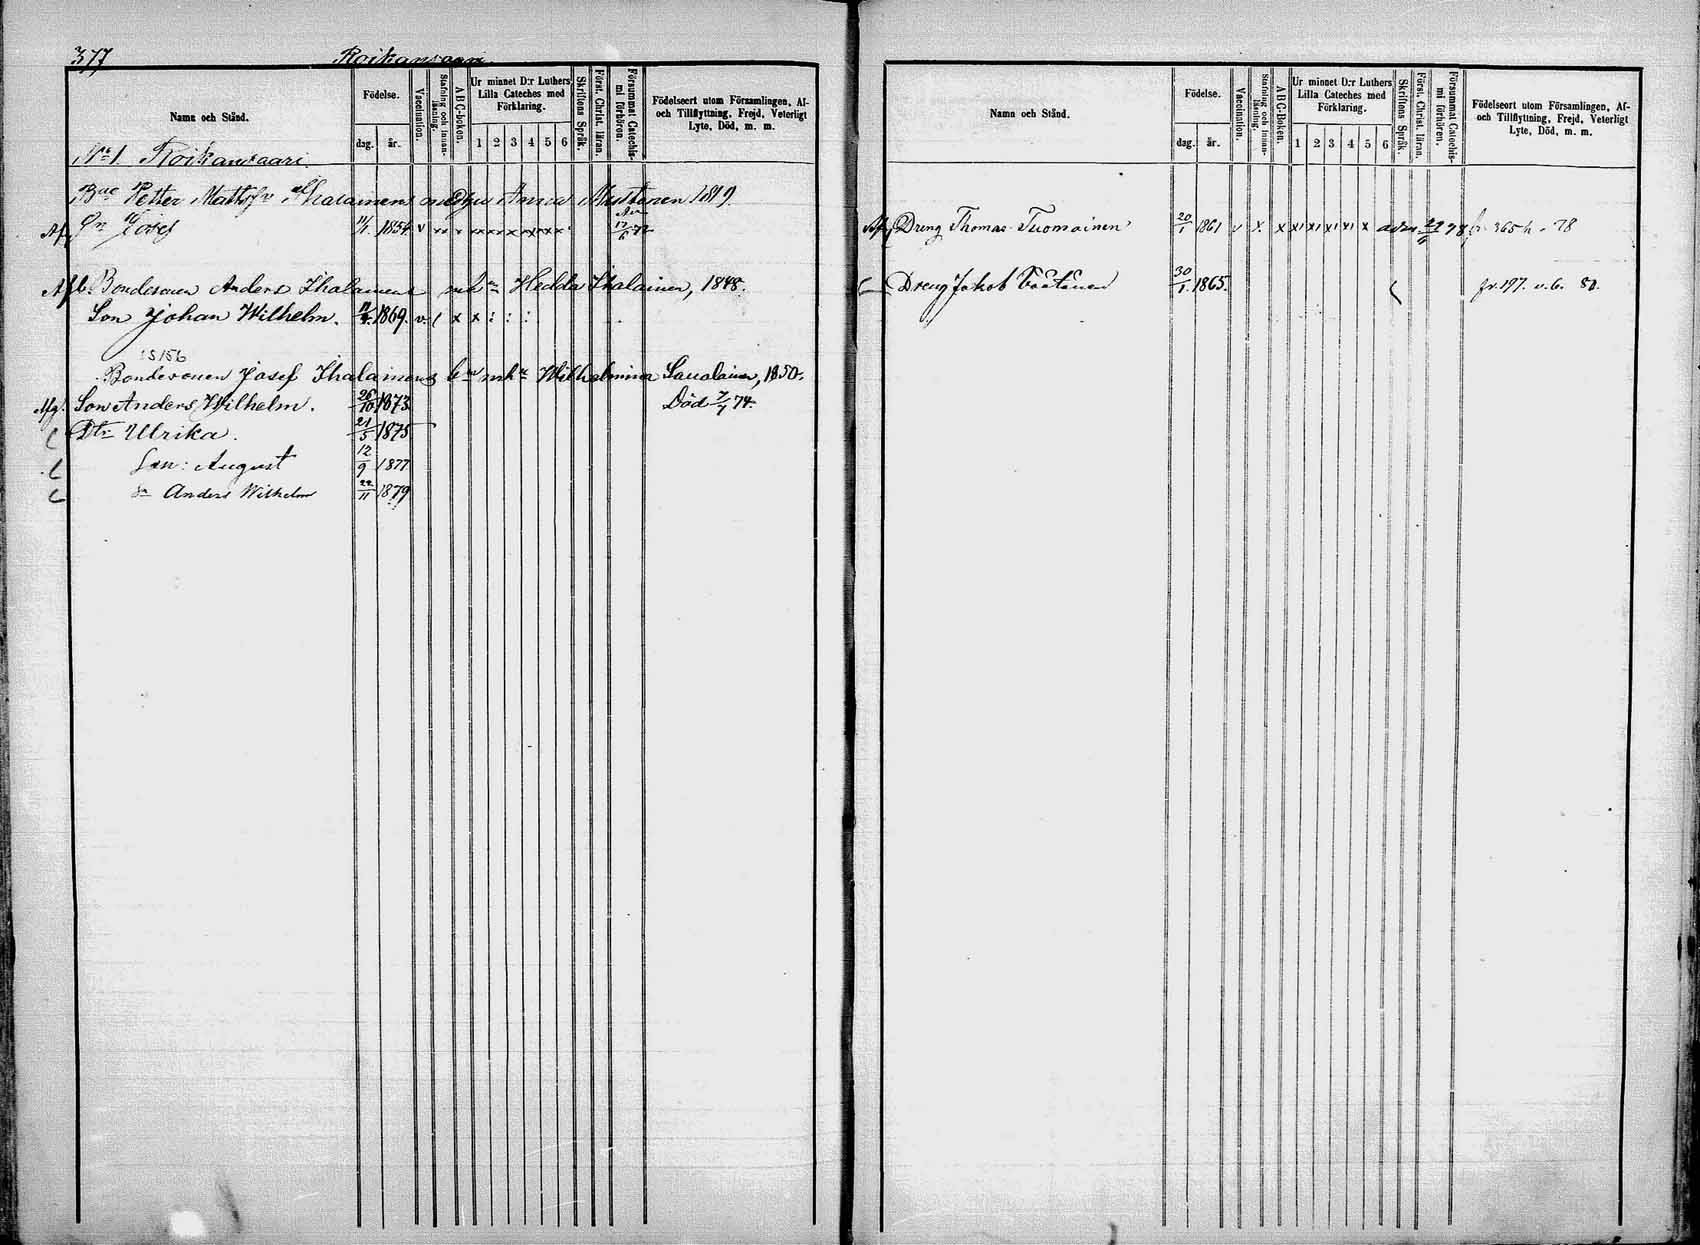 377 Roikansaari
Namn och Stånd.
Födelse.
dag. år.
Vaccination.
Stafning och innan-läsning.
ABC-boken.
Ur minnet D:r Luthers Lilla Cateches med Förklaring.
1 2 3 4 5 6
Skriftens Språk.
Först. Christ. läran.
Försummat Catechis-mi förhören.
Födelseort utom Församlingen, Af- och Tillflyttning, Frejd, Veterligt Lyte, Död, m. m.
No 1. Roikansaari.
Petter Ihalainens Anna Mustonen 1819.
11/1 1854. v x x x x x x x x
Bondesonen Anders Ihalainens Hedda Ihalainen, 1848.
Son Johan Wilhelm. 1869. v x x : : :
15156
Bondesonen Josef Ihalainens Wilhelmina Saualainen, 1850.
Son Anders Wilhelm. 26/10 1873 Död 7/7 74.
Dtr Ulrika. 21/5 1875
Son: August 12/9 1877
Anders Wilhelm 22/11 1879
Namn och Stånd.
Födelse.
dag. år.
Vaccination.
Stafning och innan-läsning.
ABC-Boken.
Ur minnet D:r Luthers Lilla Cateches med Förklaring.
1 2 3 4 5 6
Skriftens Språk.
Först. Christ. läran.
Försummat Catechis-mi förhören.
Födelseort utom Församlingen, Af- och Tillflyttning, Frejd, Veterligt Lyte, Död, m. m.
Dreng Thomas Tuomainen 20/1 1861 v x. x x x x x x 78 fr. 365 78
Dreng Jakob 30/1 1865. fr. 197. v. b. 80.